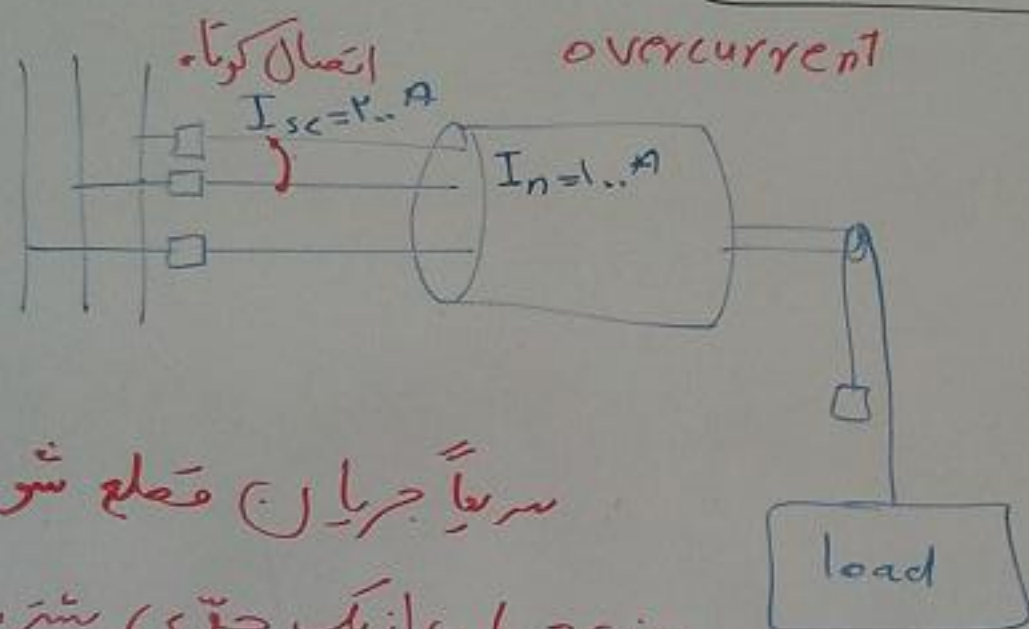 اتصال کوتاه
overcurrent
Isc=۲۰۰ A
In=۱۰۰ A
سریعاً جریان قطع شو
load
از یک حدّی بیشتر